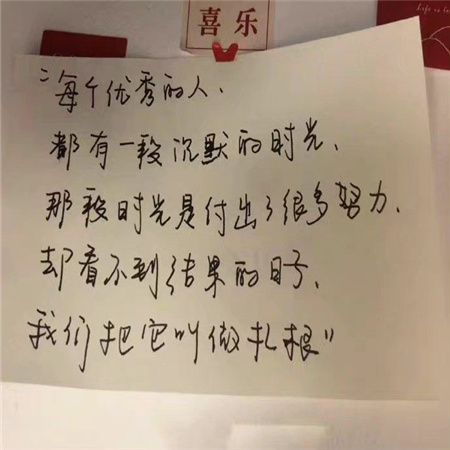 喜乐
Life is
“每个优秀的人、
都有一段沉默的时光、
那段时光是付出了很多努力、
却看不到结果的日子、
我们把它叫做扎根”